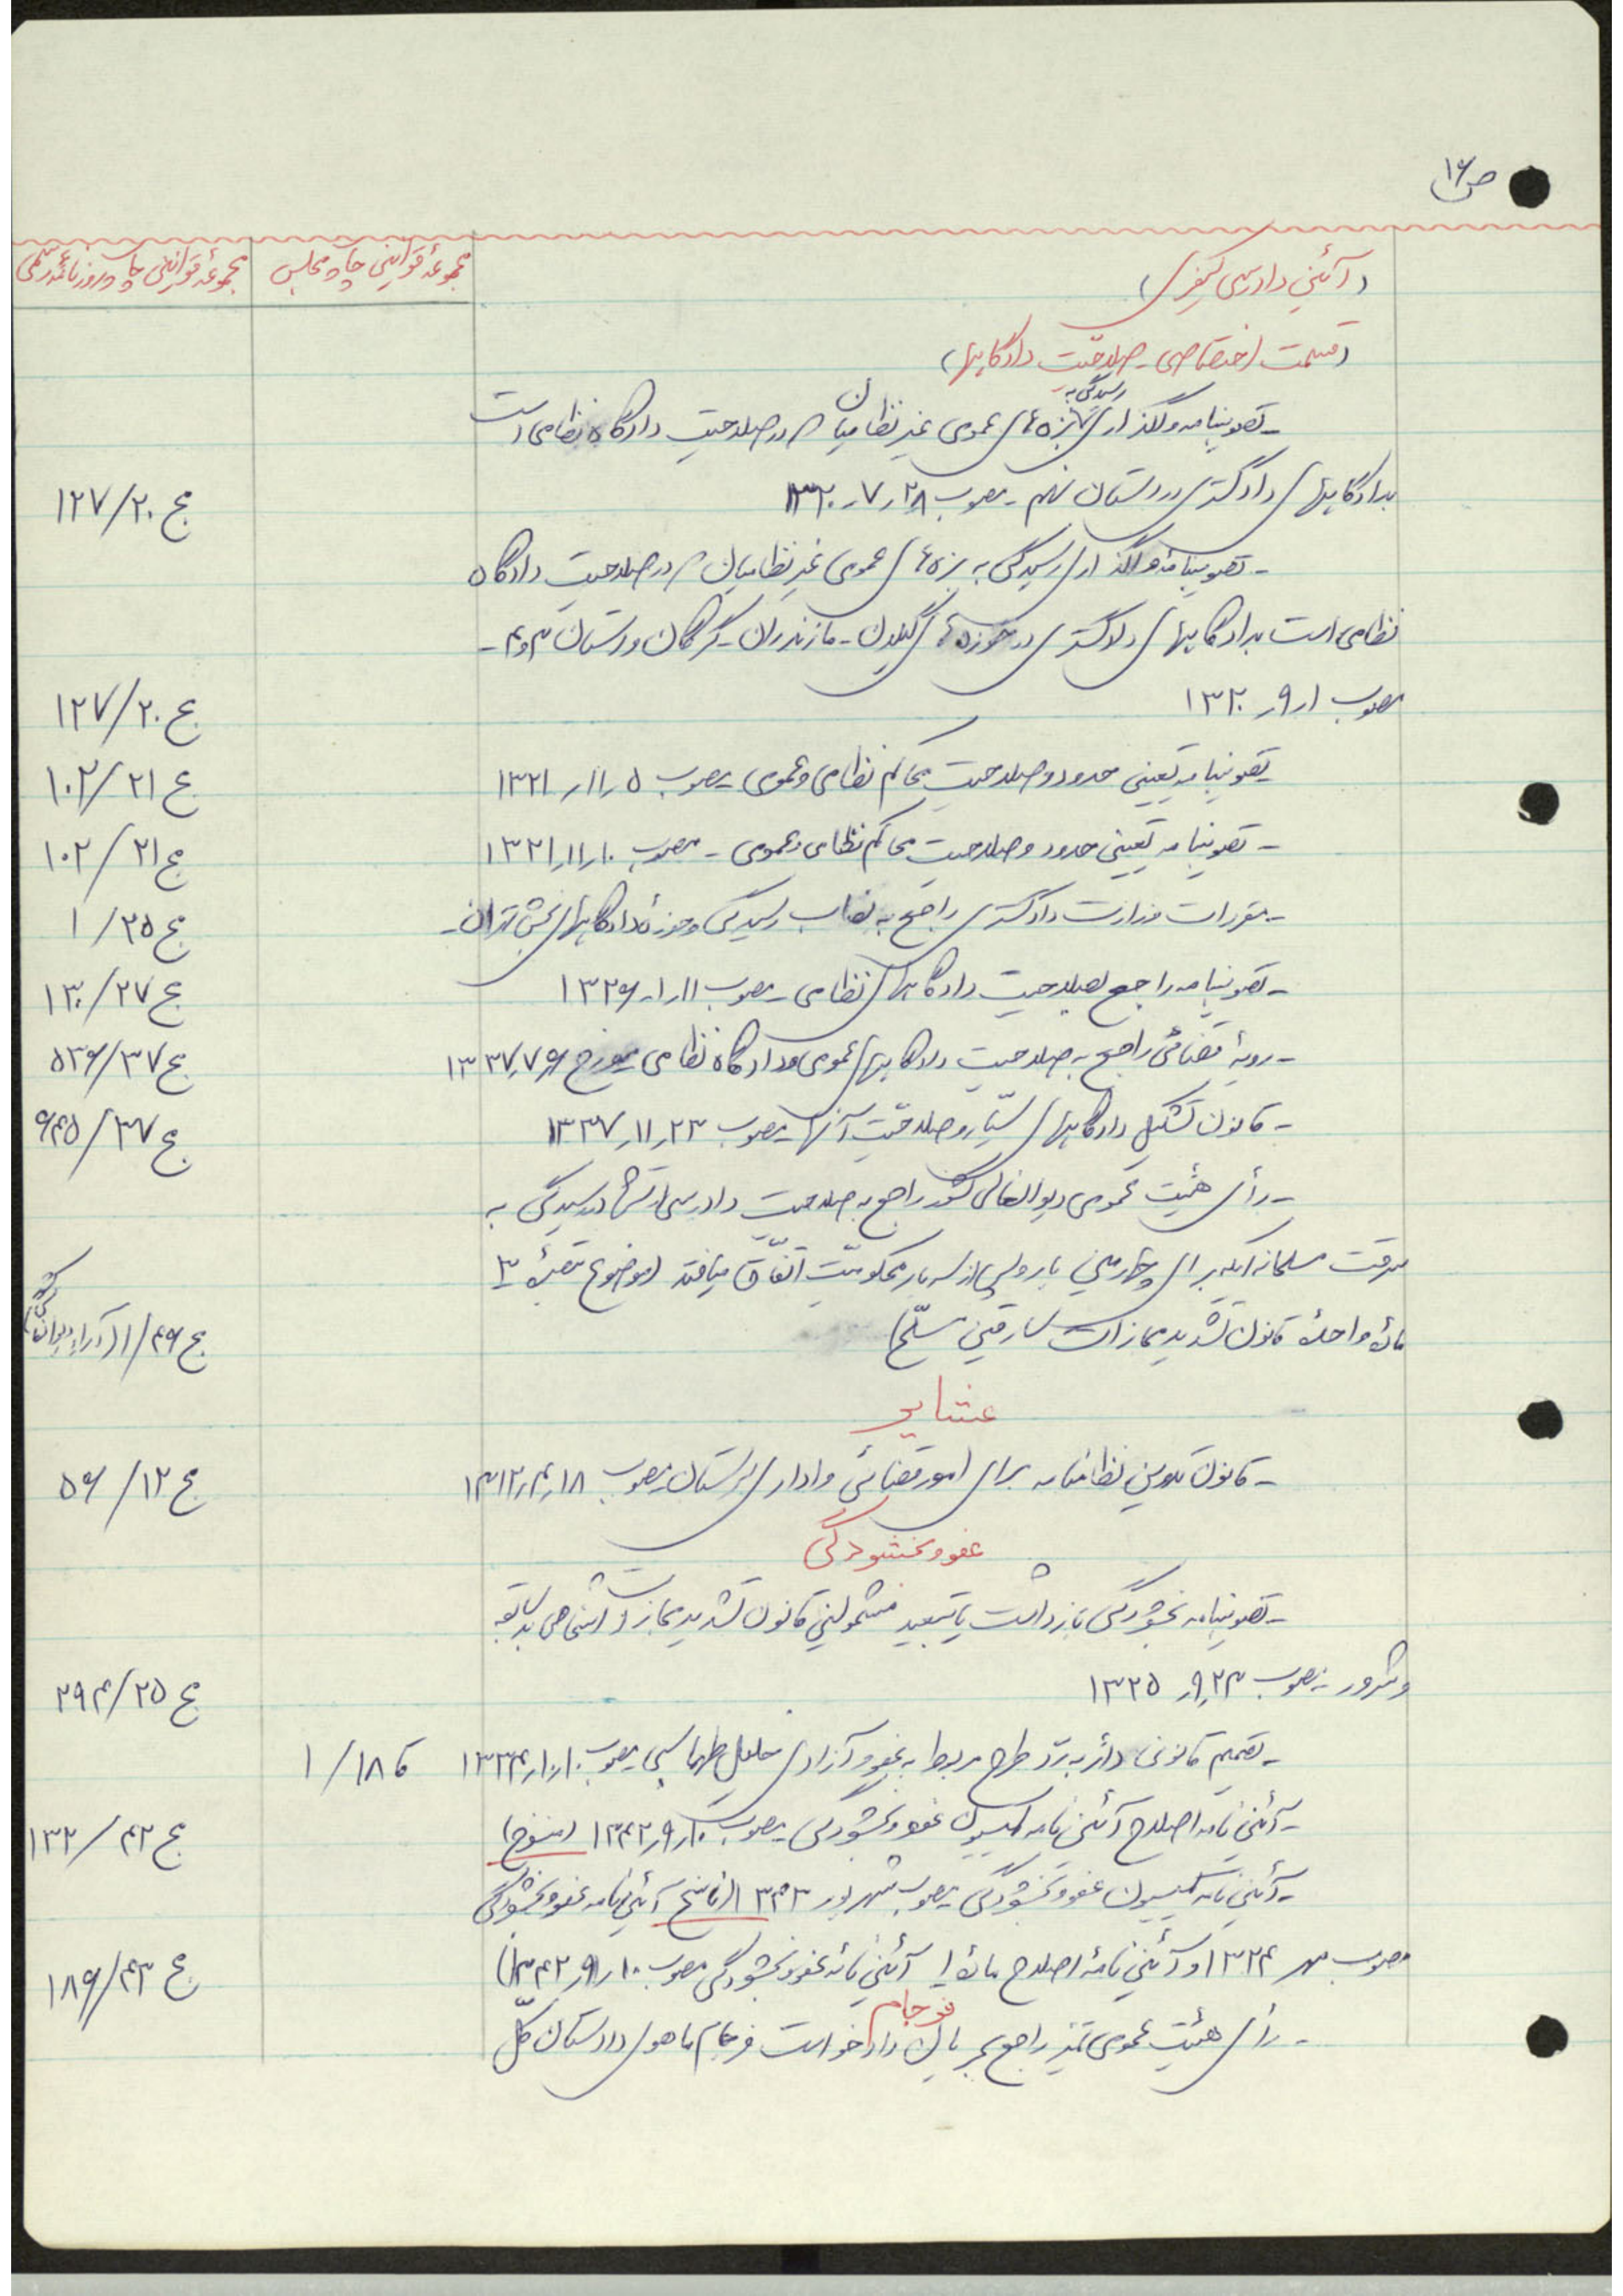 ص ۱۶
(آئین دادرسی کیفری) مجموعهٔ قوانین چاپ مجلس مجموعهٔ قوانین چاپ روزنامهٔ رسمی
(قسمت اختصاصی - صلاحیّت دادگاهها)
رسیدگی به
- تصویبنامه واگذاری بزه‌های عمومی غیر نظامیان که در صلاحیت دادگاه نظامی است
بدادگاههای دادگستری در استان نهم - مصوب ۲۸ر۷ر۱۳۲۰ ج ۱۲۷/۲۰
- تصویبنامه واگذاری رسیدگی به بزه‌های عمومی غیر نظامیان که در صلاحیت دادگاه
نظامی است بدادگاههای دادگستری در حوزه‌های گیلان - مازندران - گرگان و استان ۳ و ۴ -
مصوب ۱ر۹ر۱۳۲۰ ج ۱۲۷/۲۰
- تصویبنامه تعیین حدود و صلاحیت محاکم نظامی و عمومی - مصوب ۵ر۱۱ر۱۳۲۱ ج ۱۰۲/۲۱
- تصویبنامه تعیین حدود و صلاحیت محاکم نظامی و عمومی - مصوب ۱۰ر۱۱ر۱۳۲۱ ج ۱۰۲/۲۱
- مقررات وزارت دادگستری راجع به نصاب رسیدگی و حوزهٔ دادگاههای بخش تهران - ج ۱/۲۵
- تصویبنامه راجع بصلاحیت دادگاههای نظامی - مصوب ۱۱ر۱ر۱۳۲۶ ج ۱۳۰/۲۷
- رویهٔ قضائی راجع به صلاحیت دادگاههای عمومی و دادگاه نظامی مورخ ۶ر۷ر۱۳۳۷ ج ۵۳۶/۳۷
- قانون تشکیل دادگاههای سیّار و صلاحیّت آنها - مصوب ۲۳ر۱۱ر۱۳۳۷ ج ۶۴۵/۳۷
- رأی هیئت عمومی دیوانعالی کشور راجع به صلاحیت دادرسی ارتش در رسیدگی به
سرقت مسلحانه ایکه برای چهارمین بار و پس از سه بار محکومیّت اتفّاق میافتد (موضوع تبصرهٔ ۳
مادهٔ واحدهٔ قانون تشدید مجازات سارقین مسلّح) ج ۱/۴۶ (آراء دیوان کشور)
عشایر
- قانون تدوین نظامنامه برای امور قضائی و اداری لرستان مصوب ۱۸ر۴ر۱۳۱۲ ج ۵۶/۱۲
عفو و بخشودگی
- تصویبنامه بخشودگی بازداشت یا تبعید مشمولین قانون تشدید مجازات اشخاص بد سابقه
و شرور - مصوب ۲۳ر۹ر۱۳۲۵ ج ۲۹۴/۲۵
- تصمیم قانونی دائر به ردّ طرح مربوط به عفو و آزادی خلیل طهماسبی مصوب ۱۰ر۱ر۱۳۳۴ ک ۱/۱۸
- آئین نامه اصلاح آئین نامه کمیسیون عفو و بخشودگی مصوب ۱۰ر۹ر۱۳۴۲ (منسوخ) ج ۱۳۲/۴۲
- آئین نامه کمیسیون عفو و بخشودگی مصوب شهریور ۱۳۴۳ (ناسخ آئین نامه عفو و بخشودگی
مصوب مهر ۱۳۲۴ و آئین نامهٔ اصلاح مادهٔ ۱ آئین نامه عفو و بخشودگی مصوب ۱۰ر۹ر۱۳۴۲) ج ۱۸۶/۴۳
فرجام
- رأی هیئت عمومی تمیز راجع بجریان دادخواست فرجام ماهوی دادستان کلّ